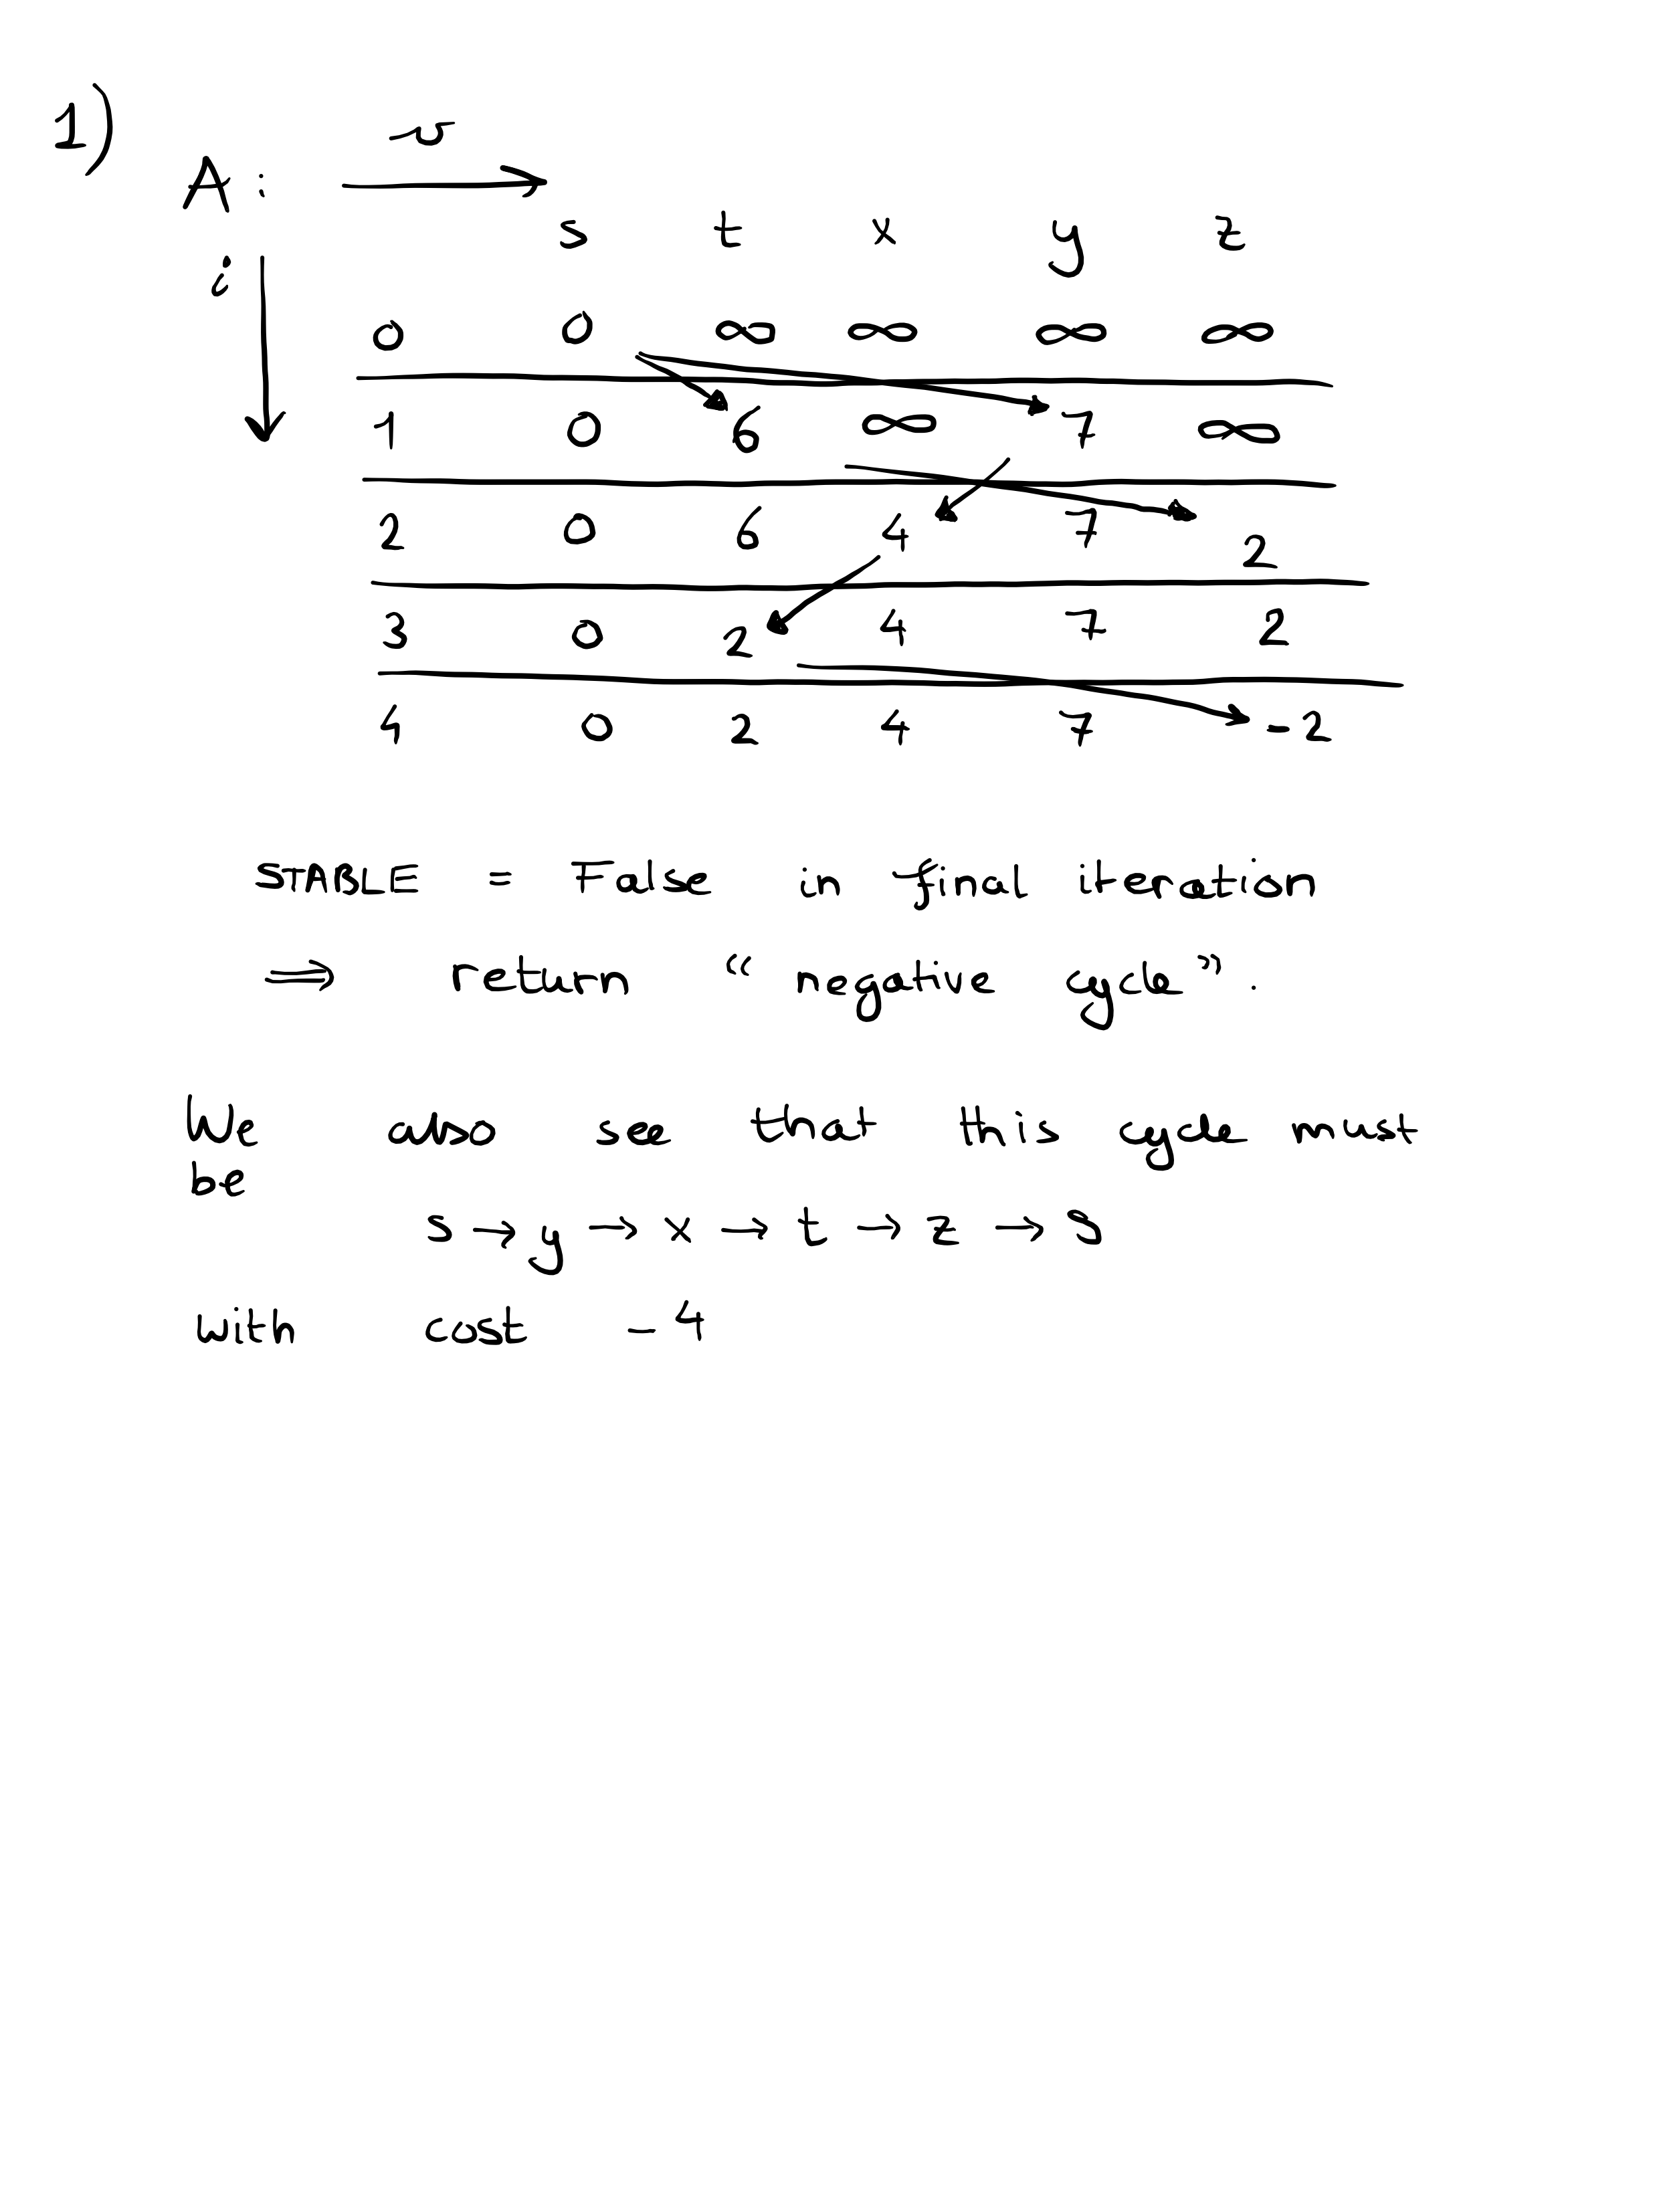 1)
A : v
s t x y z
i
0 0 ∞ ∞ ∞ ∞
1 0 6 ∞ 7 ∞
2 0 6 4 7 2
3 0 2 4 7 2
4 0 2 4 7 -2
STABLE = False in final iteration
⇒ return “negative cycle”.
We also see that this cycle must
be
s → y → x → t → z → s
with cost -4